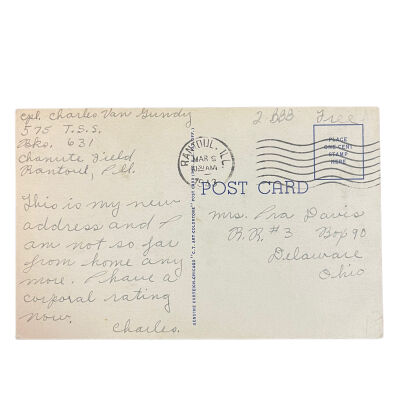 Cpl. Charles Van Gundy
575 T.S.S.
Bks. 631
Chanute Field
Rantoul, Ill.
This is my new
address and I
am not so far
from home any
more. I have a
corporal rating
now.
Charles.
2-BBB Free
PLACE
ONE CENT
STAMP
HERE
RANTOUL, ILL.
MAR
AM
1943
POST CARD
Mrs. Ira Davis
R.R. #3 Box 90
Delaware
Ohio
GENUINE CURTEICH-CHICAGO "C.T. ART-COLORTONE" POST CARD